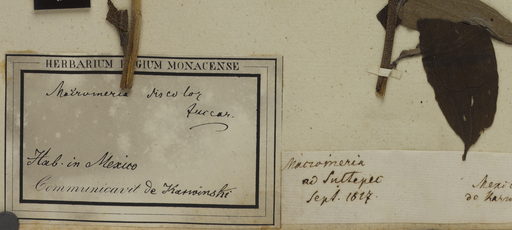 HERBARIUM REGIUM MONACENSE
Macromeria discolor
Zuccar.
Hab. in Mexico
Communicavit de Karwinski
Macromeria
ad Sultepec
Sept. 1827.
Mexic
de Karw